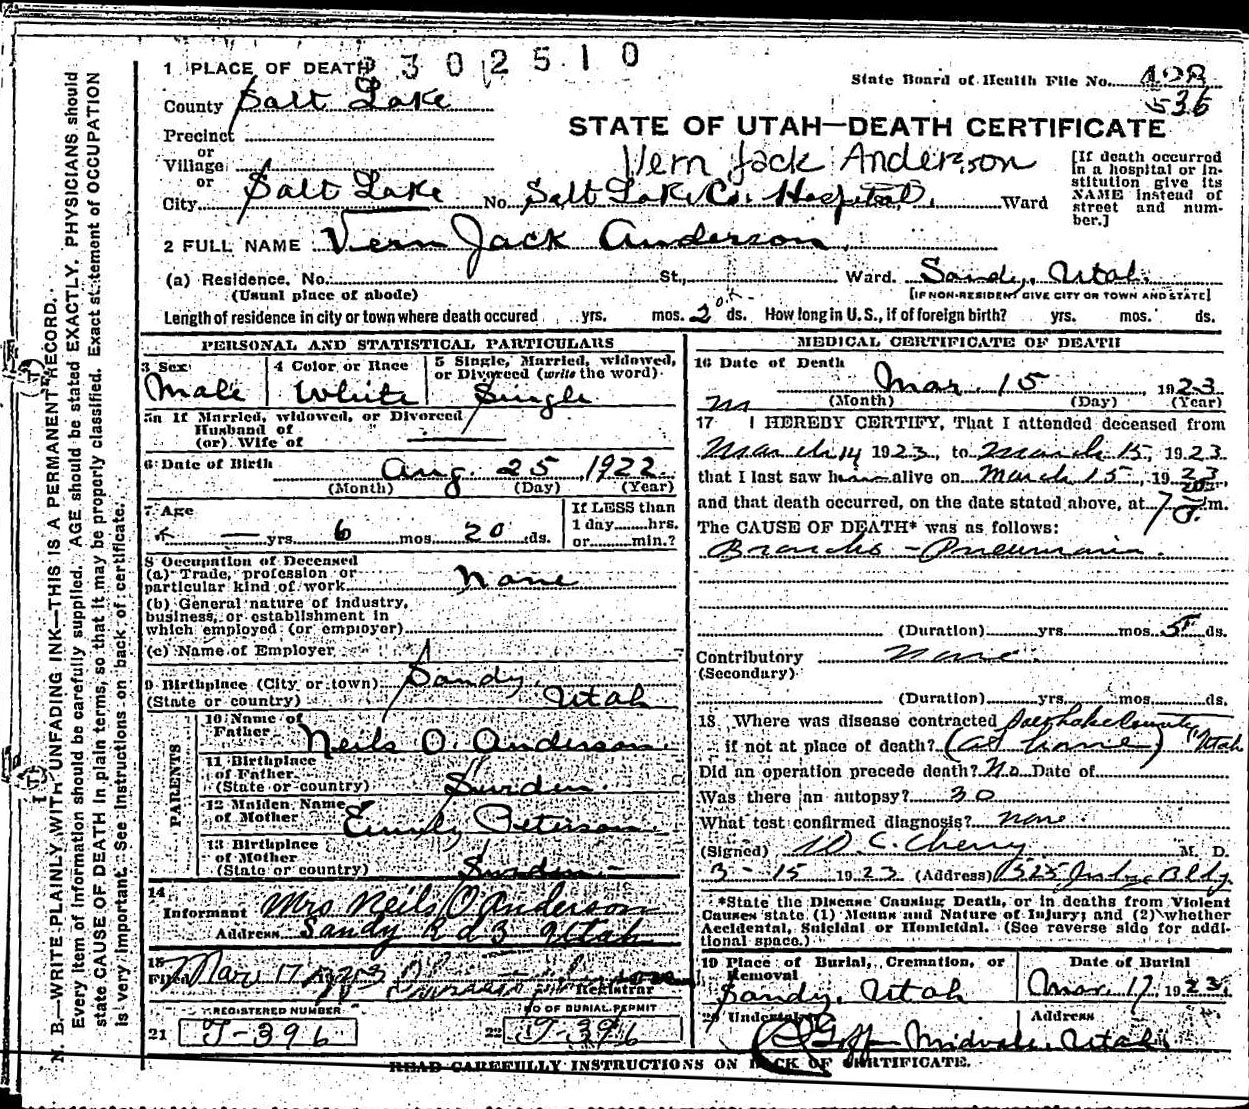 N. B.—WRITE PLAINLY WITH UNFADING INK—THIS IS A PERMANENT RECORD.
Every item of information should be carefully supplied. AGE should be stated EXACTLY. PHYSICIANS should
state CAUSE OF DEATH in plain terms, so that it may be properly classified. Exact statement of OCCUPATION
is very important. See instructions on back of certificate.
302510
1 PLACE OF DEATH
State Board of Health File No.
536
County Salt Lake
Precinct
or
Village
or
City Salt Lake No. Salt Lake Co. Hospital Ward
STATE OF UTAH—DEATH CERTIFICATE
Vern Jack Anderson
[If death occurred
in a hospital or in-
stitution give its
NAME instead of
street and num-
ber.]
2 FULL NAME Vern Jack Anderson
(a) Residence. No. St., Ward. Sandy, Utah.
(Usual place of abode) [IF NON-RESIDENT GIVE CITY OR TOWN AND STATE]
Length of residence in city or town where death occured yrs. mos. 2 ds. How long in U. S., if of foreign birth? yrs. mos. ds.
PERSONAL AND STATISTICAL PARTICULARS
3 Sex
Male
4 Color or Race
White
5 Single, Married, widowed,
or Divorced (write the word)
Single
5a If Married, widowed, or Divorced
Husband of
(or) Wife of
6 Date of Birth Aug. 25, 1922
(Month) (Day) (Year)
7 Age
— yrs. 6 mos. 20 ds.
If LESS than
1 day hrs.
or min.?
8 Occupation of Deceased
(a) Trade, profession or
particular kind of work None
(b) General nature of industry,
business, or establishment in
which employed (or employer)
(c) Name of Employer
9 Birthplace (City or town) Sandy,
(State or country) Utah
PARENTS
10 Name of
Father Neils O. Anderson.
11 Birthplace
of Father
(State or country) Sweden.
12 Maiden Name
of Mother Emily Peterson.
13 Birthplace
of Mother
(State or country) Sweden.
14
Informant Mrs Neils O Anderson
Address Sandy R d 3 Utah
15
Filed Mar 17 1923
Registrar
REGISTERED NUMBER
21 T-396
NO OF BURIAL PERMIT
22 T-396
MEDICAL CERTIFICATE OF DEATH
16 Date of Death
Mar. 15 1923
(Month) (Day) (Year)
17 I HEREBY CERTIFY, That I attended deceased from
March 14 1923, to March 15, 1923
that I last saw h alive on March 15, 1923,
and that death occurred, on the date stated above, at 7 m.
The CAUSE OF DEATH* was as follows:
Broncho-Pneumonia.
(Duration) yrs. mos. 5 ds.
Contributory None.
(Secondary)
(Duration) yrs. mos. ds.
18 Where was disease contracted Salt Lake County
if not at place of death? (at home) Utah
Did an operation precede death? No Date of
Was there an autopsy? no
What test confirmed diagnosis? none.
(Signed) W. C. Cherry M. D.
3-15 1923 (Address) Judge Bldg.
*State the Disease Causing Death, or in deaths from Violent
Causes state (1) Means and Nature of Injury; and (2) whether
Accidental, Suicidal or Homicidal. (See reverse side for addi-
tional space.)
19 Place of Burial, Cremation, or
Removal
Sandy, Utah
Date of Burial
Mar. 17 1923.
20 Undertaker Goff
Address
Midvale, Utah.
READ CAREFULLY INSTRUCTIONS ON BACK OF CERTIFICATE.